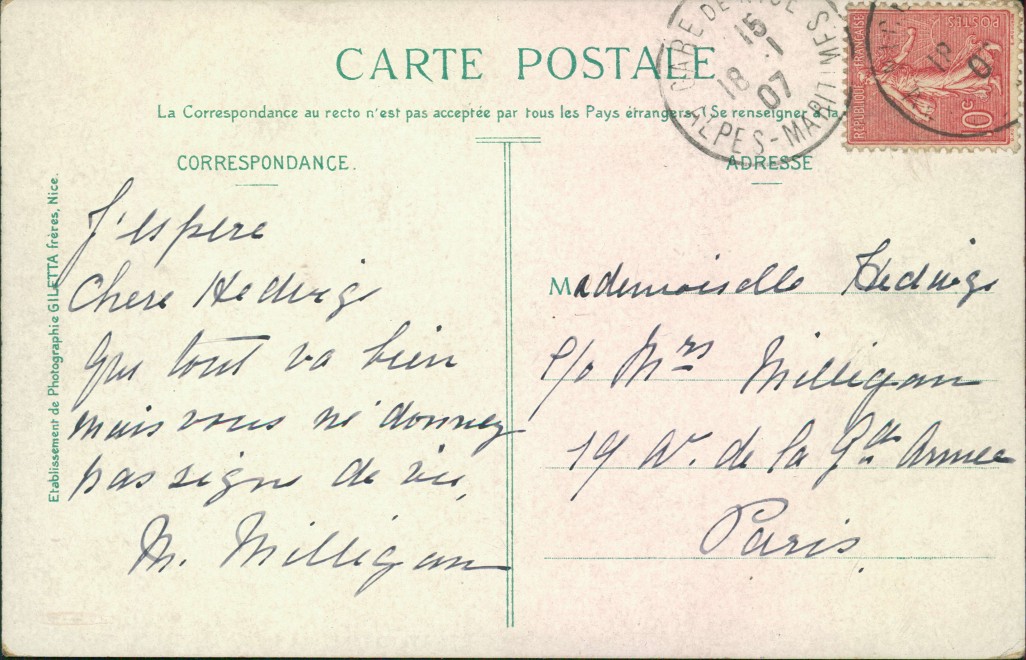 CARTE POSTALE
La Correspondance au recto n'est pas acceptée par tous les Pays étrangers (Se renseigner à la
CORRESPONDANCE.
ADRESSE
GARE DE NICE
15 - 1
18 07
ALPES-MARITIMES
REPUBLIQUE FRANÇAISE
POSTES
10c
18
07
Etablissement de Photographie GILETTA frères, Nice.
J'espere
Chere Hedwige
que tout va bien
mais vous ne donnez
pas signe de vie,
M. Milligan
Mademoiselle Hedwige
c/o Mrs Milligan
19 Av. de la Gde Armee
Paris